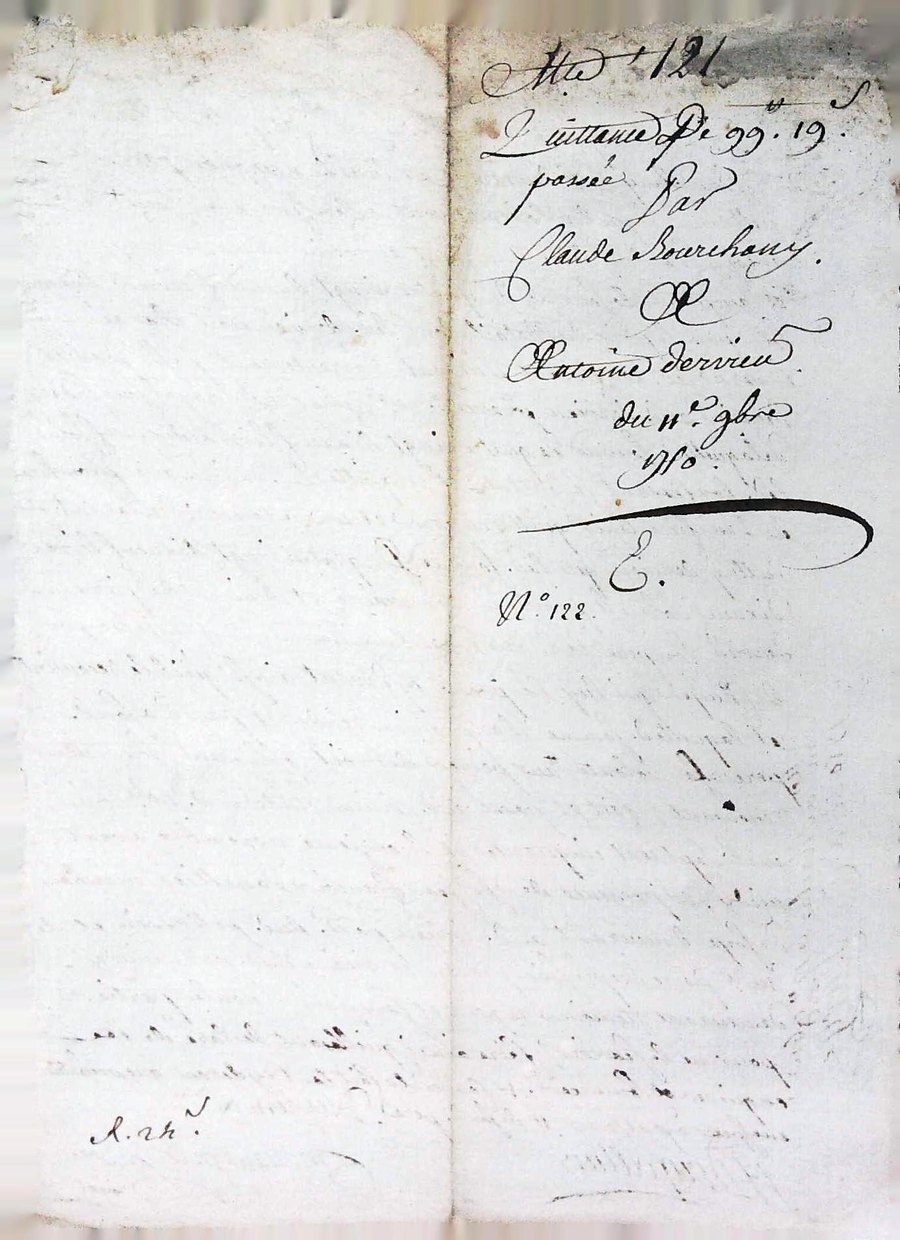 Cotte 121
Quittance De 99ᵗᵗ. 19ˢ.
passée Par
Claude Bourchany.
A
Antoine dervieu.
du 11ᵉ. 9bre
1750.
E.
N.° 122.
R. 24ˢ.